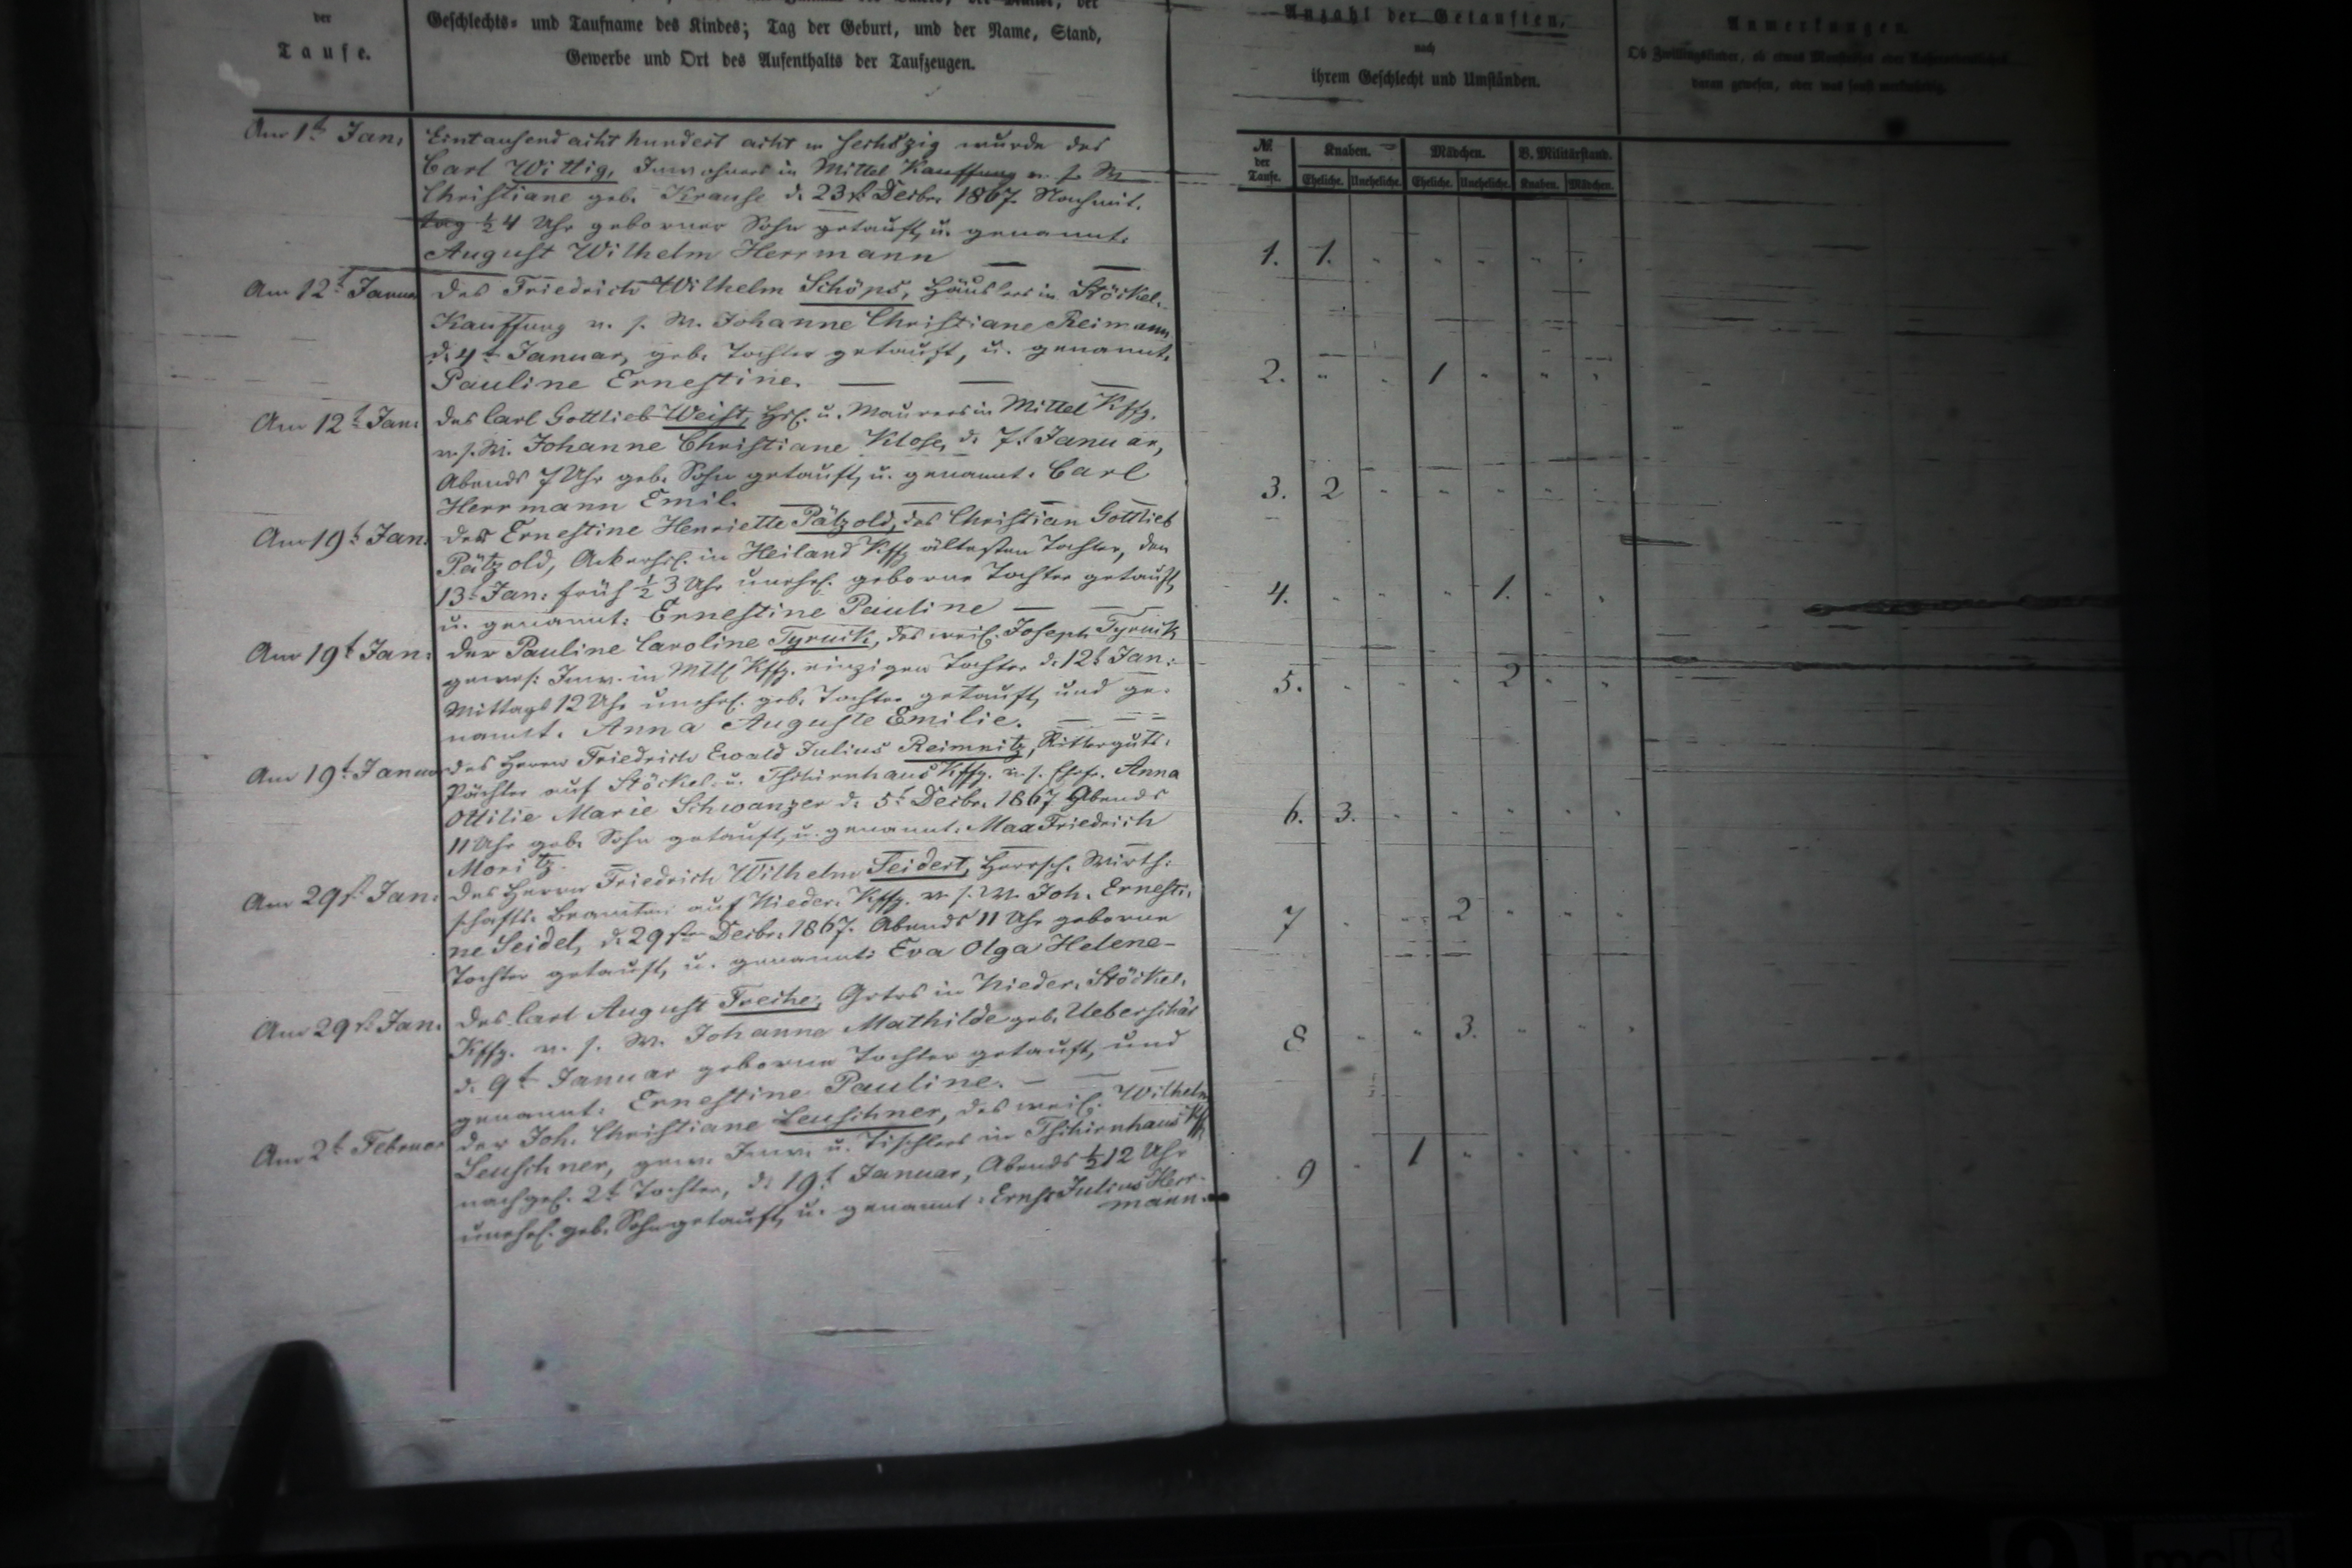 der
Taufe.
Geschlechts- und Taufname des Kindes; Tag der Geburt, und der Name, Stand,
Gewerbe und Ort des Aufenthalts der Taufzeugen.
Anzahl der Getauften,
nach
ihrem Geschlecht und Umständen.
Anmerkungen.
Ob Zwillingskinder, ob etwas
daran gewesen, oder was sonst merkwürdig.
No. der Taufe. Knaben. Mädchen. B. Militärstand.
Eheliche. Uneheliche. Eheliche. Uneheliche. Knaben. Mädchen.
Am 1t Jan: Eintausend acht hundert acht u sechszig wurde des
Carl Wittig, Inwohners in Mittel Kauffung u. s. W
Christiane geb. Krause d. 23t Decbr. 1867. Nachmit.
tag ½4 Uhr geborner Sohn getauft, u. genannt:
August Wilhelm Herrmann — — 1. 1. " " " " "
Am 12t Januar des Friedrich Wilhelm Schöps, Häuslers in Stöckel-
Kauffung u. s. W. Johanne Christiane Reimann
d. 4t Januar, geb. Tochter getauft, u. genannt.
Pauline Ernestine. — — — 2. " " 1 " " "
Am 12t Jan: des Carl Gottlieb Weist, Hsl. u. Maurers in Mittel Kffg.
u. s. W. Johanne Christiane Klose, d. 7t Januar,
Abends 7 Uhr geb. Sohn getauft, u. genannt. Carl
Herrmann Emil. — — — 3. 2 " " " " "
Am 19t Jan. der Ernestine Henriette Pätzold, des Christian Gottlieb
Pätzold, Ackerhsl. in Heiland Kffg ältesten Tochter, den
13t Jan: früh ½3 Uhr unehel. geborne Tochter getauft,
u. genannt: Ernestine Pauline — — 4. " " " 1. " "
Am 19t Jan: der Pauline Caroline Tyrnik, des weil. Joseph Tyrnik
gewes: Inw. in Mttl Kffg. einzigen Tochter d. 12t Jan:
Mittags 12 Uhr unehel. geb. Tochter getauft, und ge-
nannt. Anna Auguste Emilie. — — 5. " " " 2 " "
Am 19t Januar des Herrn Friedrich Ewald Julius Reimnitz, Ritterguts-
Pächter auf Stöckel- u. Tschirnhaus Kffg. u. s. Ehefr. Anna
Ottilie Marie Schwanzer d. 5t Decbr. 1867 Abends
11 Uhr geb. Sohn getauft, u. genannt: Max Friedrich
Moritz. — — — 6. 3. " " " " "
Am 29st Jan: des Herrn Friedrich Wilhelm Seidert, Herrsch. Wirth-
schafts-Beamten auf Nieder-Kffg. u. s. W. Joh. Ernesti-
ne Seidel, d. 29sten Decbr. 1867. Abends 11 Uhr geborne
Tochter getauft, u. genannt: Eva Olga Helene- 7 " " 2 " " "
Am 29st Jan. des Carl August Freche, Grtrs in Nieder-Stöckel-
Kffg. u. s. W. Johanne Mathilde geb. Ueberschär
d. 9t Januar geborne Tochter getauft, und
genannt: Ernestine Pauline. — — — 8 " " 3. " " "
Am 2t Februar der Joh. Christiane Leuschner, des weil. Wilhelm
Leuschner, gew. Inw. u. Tischlers in Tschirnhaus Kffg
nachgel. 2t Tochter, d. 19t Januar, Abends ½12 Uhr
unehel. geb. Sohn getauft, u. genannt: Ernst Julius Herr-
mann. 9 " 1 " " " "